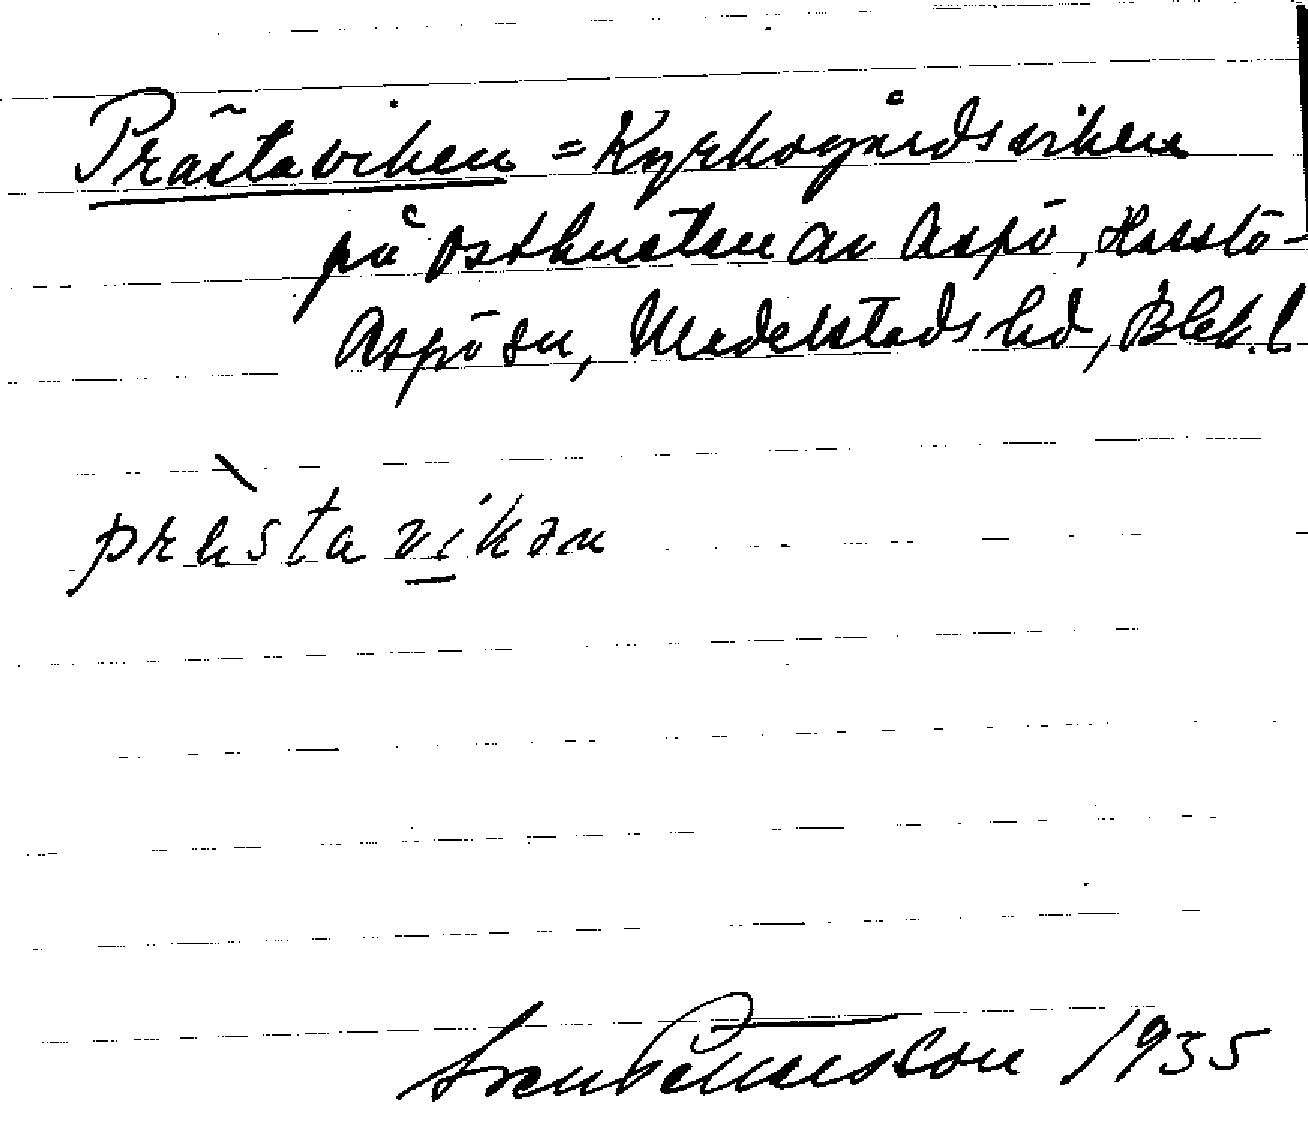 Prästaviken = Kyrkogårdsviken
på ostkusten av Aspö, Hasslö-
Aspö sn, Medelstads hd, Blek. l
prästa vikən
Sven Benson 1935